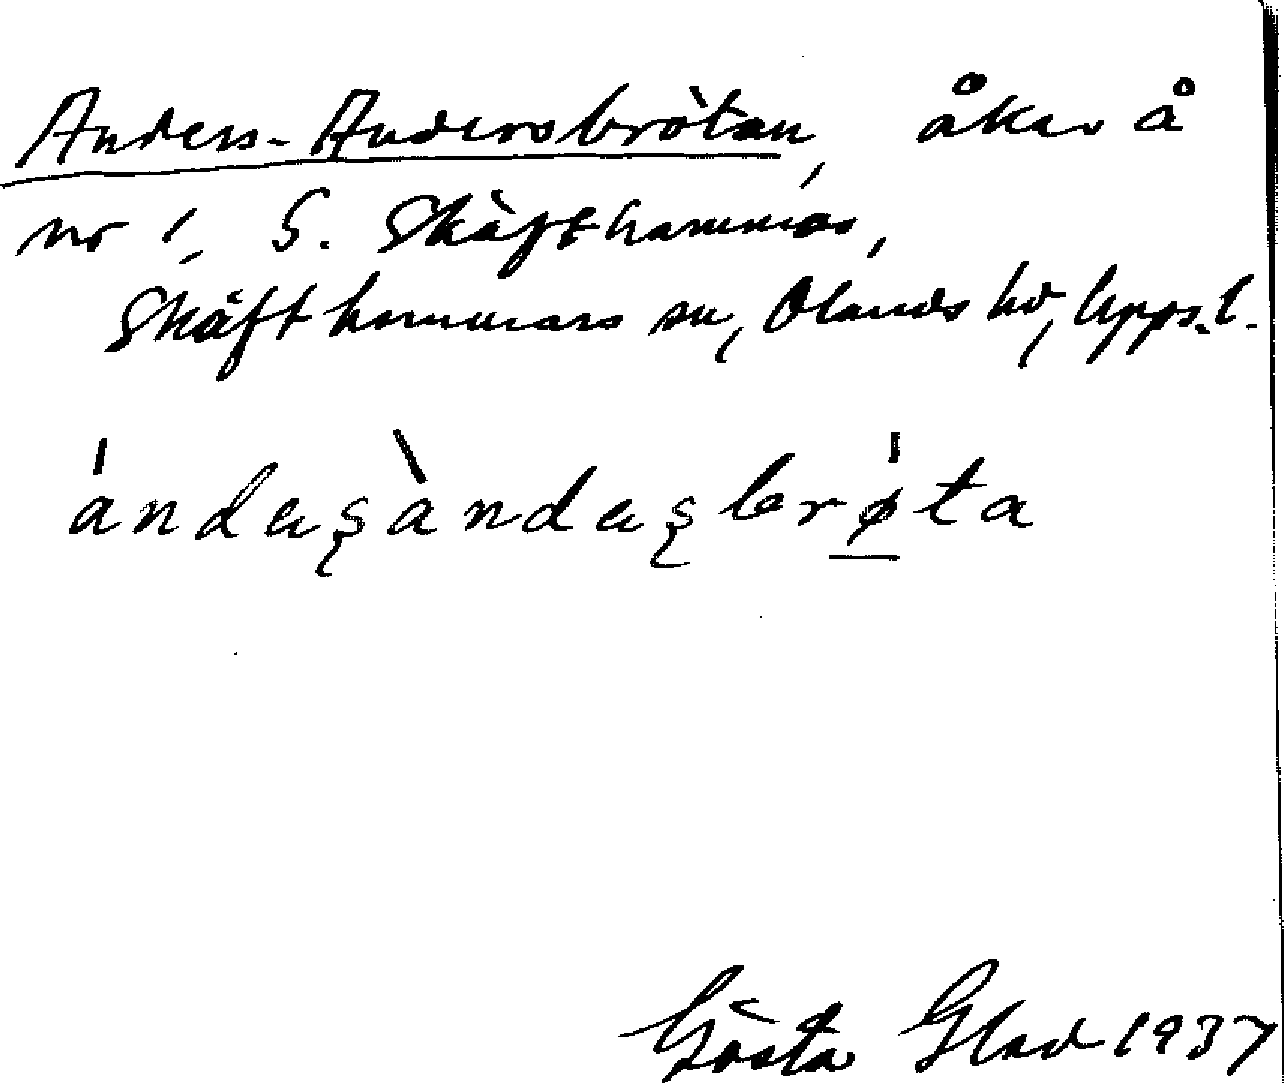 Anders-Andersbrötan, åker å
nr 1, S. Skäfthammar,
Skäfthammars sn, Olands hd, Upps. l.
ándaʂàndaʂbrǿta
Gösta Glad 1937